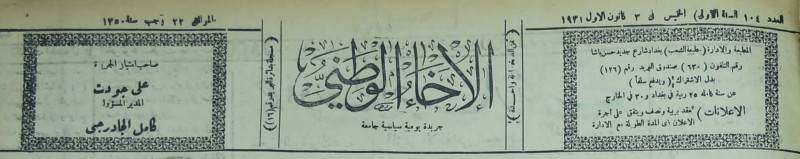 العدد ١٠٤ السنة الاولى) الخميس في ٣ كانون الاول ١٩٣١
الموافق ٢٢ رجب سنة ١٣٥٠
المطبعة والادارة (مطبعة الشعب) بغداد شارع جديد حسن باشا
رقم التلفون (٦٣٠) صندوق البريد رقم (١٢٦)
بدل الاشتراك (ويدفع سلفا)
عن سنة كاملة ٢٥ ربية في بغداد و ٣٠ في الخارج
الاعلانات (يعقد بربية ونصف ويتفق على اجرة
الاعلان ذي المدة الطويلة مع الادارة
ثمن النسخة آنة واحدة
الإخاء الوطني
جريدة يومية سياسية جامعة
(١٦)
صاحب امتياز الجريدة
علي جودت
المدير المسؤول
كامل الجادرجي